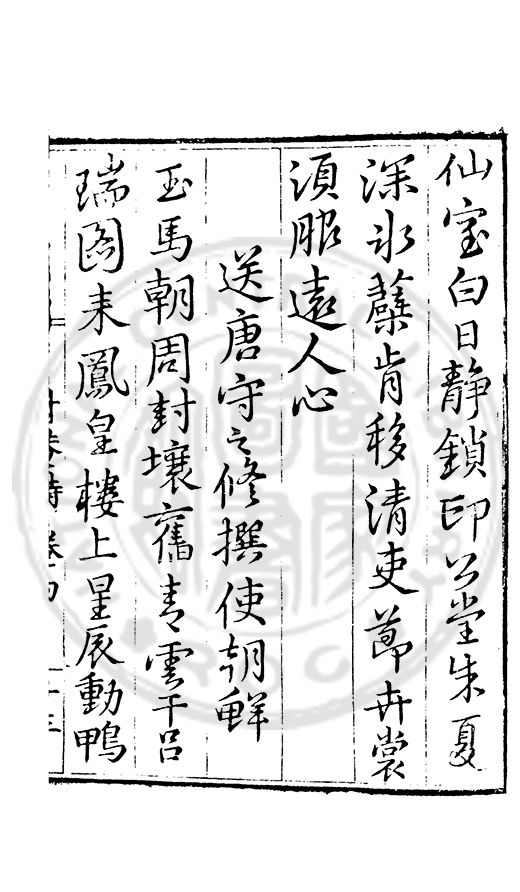 仙室白日靜鎖印公堂朱夏
深氷蘗肯移清吏節卉裳
須服遠人心
送唐守之修撰使朝鮮
玉馬朝周封壤舊青雲干呂
瑞圖来鳳皇樓上星辰動鴨